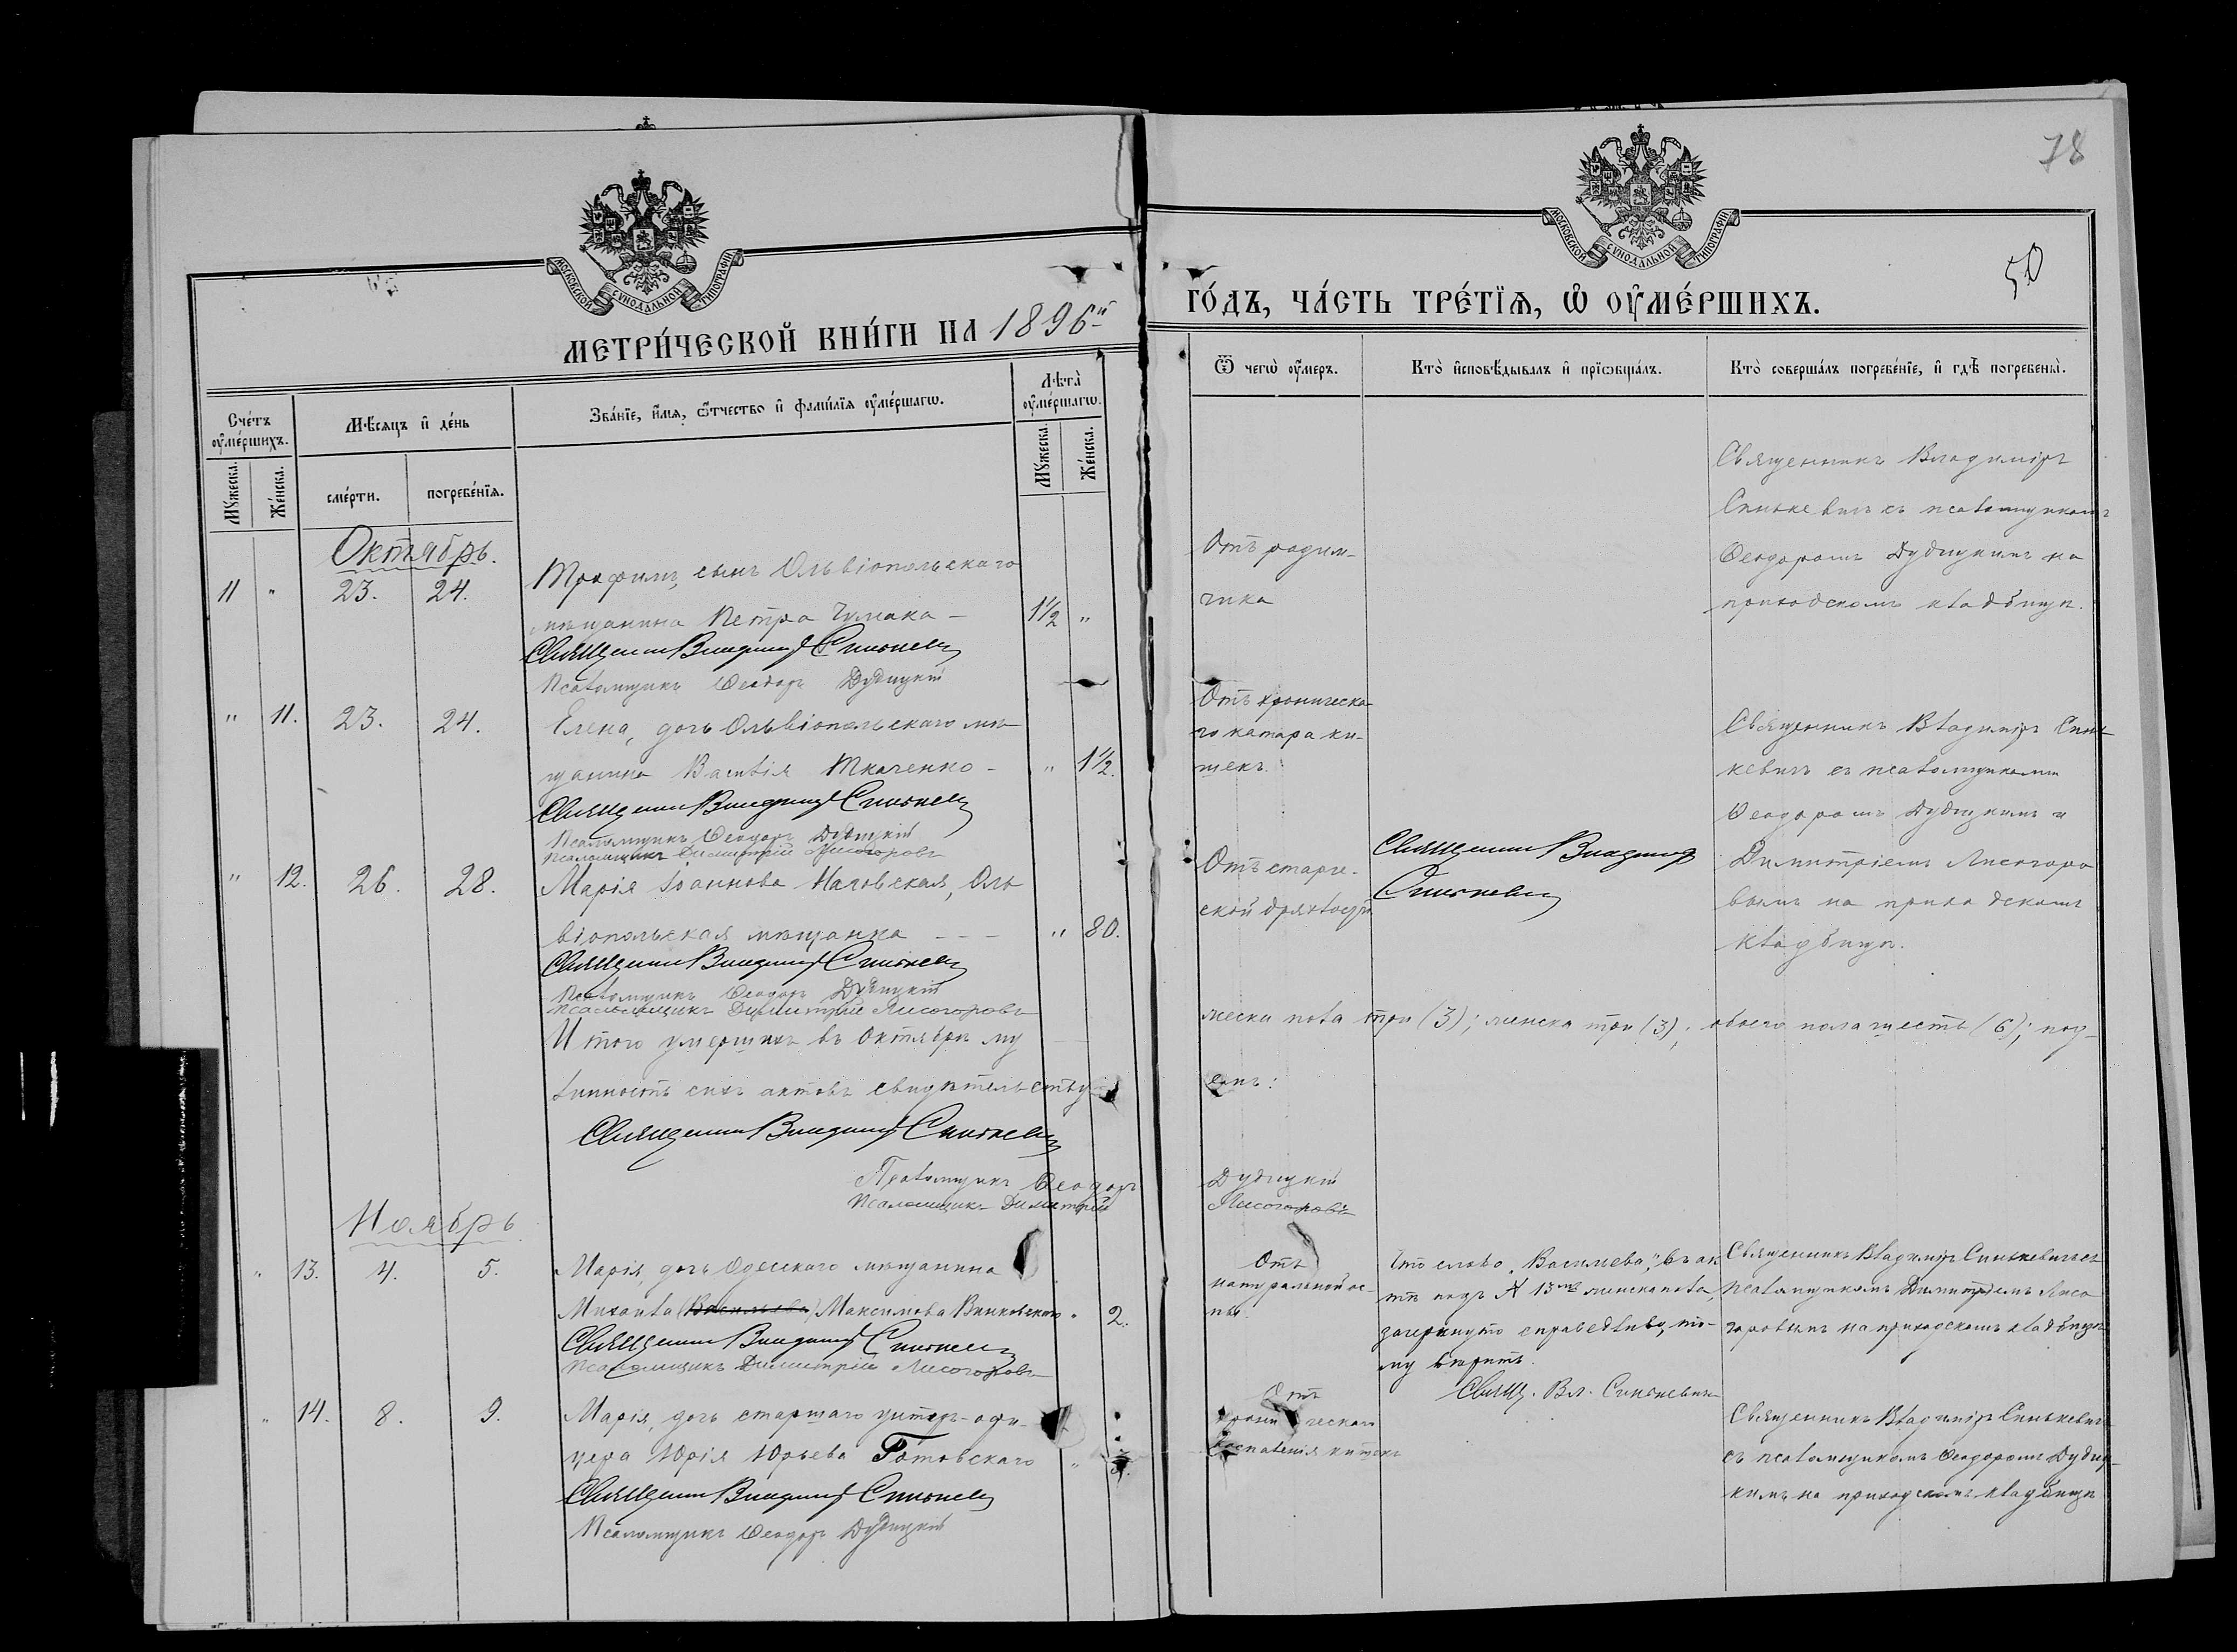 78
50
МОСКОВСКОЙ СѴНОДАЛЬНОЙ ТИПОГРАФІИ
МОСКОВСКОЙ СѴНОДАЛЬНОЙ ТИПОГРАФІИ
МЕТРИ́ЧЕСКОЙ КНИ́ГИ НА 1896й
ГО́ДЪ, ЧА́СТЬ ТРЕ́ТЇѦ, Ѡ҆ ОУ҆МЕ́РШИХЪ.
Сче́тъ оу҆ме́ршихъ.
Мѣ́сяцъ и҆ де́нь
Зва́нїе, и҆́мѧ, ѻ҆́тчество и҆ фами́лїѧ оу҆ме́ршагѡ.
Лѣ́та оу҆ме́ршагѡ.
Мꙋ́жеска.
Же́нска.
сме́рти.
погребе́нїѧ.
Мꙋ́жеска.
Же́нска.
Ѿ чегѡ̀ оу҆́меръ.
Кто̀ и҆сповѣ́дывалъ и҆ прїѡбща́лъ.
Кто̀ соверша́лъ погребе́нїе, и҆ гдѣ̀ погребены̀.
Октябрь.
11 " 23. 24. Трофимъ, сынъ Ольвіопольскаго
мѣщанина Петра Чумака – 1½ "
Священникъ Владиміръ Синькевичъ
Псаломщикъ Ѳеодоръ Дудицкій
Отъ родим-
чика
Священникъ Владиміръ
Синькевичъ съ псаломщикомъ
Ѳеодоромъ Дудицкимъ на
приходскомъ кладбищѣ.
" 11. 23. 24. Елена, дочь Ольвіопольскаго мѣ-
щанина Василія Ткаченко - " 1½.
Священникъ Владиміръ Синькевичъ
Псаломщикъ Ѳеодоръ Дудицкій
Псаломщикъ Димитрій Лисогоровъ
Отъ хроническа-
го катара ки-
шекъ.
Священникъ Владиміръ Синь-
кевичъ съ псаломщиками
Ѳеодоромъ Дудицкимъ и
Димитріемъ Лисогоро
вымъ на приходскомъ
кладбищѣ.
" 12. 26. 28. Марія Іоаннова Началовская, Оль
віопольская мѣщанка - - - " 80.
Священникъ Владиміръ Синькевичъ
Псаломщикъ Ѳеодоръ Дудицкій
Псаломщикъ Димитрій Лисогоровъ
Отъ старче-
ской дряхлости
Священникъ Владиміръ
Синькевичъ
Итого умершихъ въ Октябрѣ му
жеска пола три (3); женска три (3), обоего пола шесть (6); под-
линность сихъ актовъ свидѣтельству-
емъ:
Священникъ Владиміръ Синькевичъ
Псаломщикъ Ѳеодоръ Дудицкій
Псаломщикъ Димитрій Лисогоровъ
Ноябрь
" 13. 4. 5. Марія, дочь Одесскаго мѣщанина
Михаила (Васильева) Максимова Винковскаго " 2.
Священникъ Владиміръ Синькевичъ
Псаломщикъ Димитрій Лисогоровъ
Отъ
натуральной ос-
пы.
Что слово "Васильева", въ ак
тѣ подъ № 13мъ женска пола,
зачеркнуто справедливо, то-
му вѣрить.
Свящ. Вл. Синькевичъ
Священникъ Владиміръ Синькевичъ съ
псаломщикомъ Димитріемъ Лисо
горовымъ на приходскомъ кладбищѣ
" 14. 8. 9. Марія, дочь старшаго унтеръ-офи-
цера Юрія Юрьева Готовскаго "
Священникъ Владиміръ Синькевичъ
Псаломщикъ Ѳеодоръ Дудицкій
Отъ
хроническаго
воспаленія кишекъ
Священникъ Владиміръ Синькевичъ
съ псаломщикомъ Ѳеодоромъ Дудиц-
кимъ на приходскомъ кладбищѣ